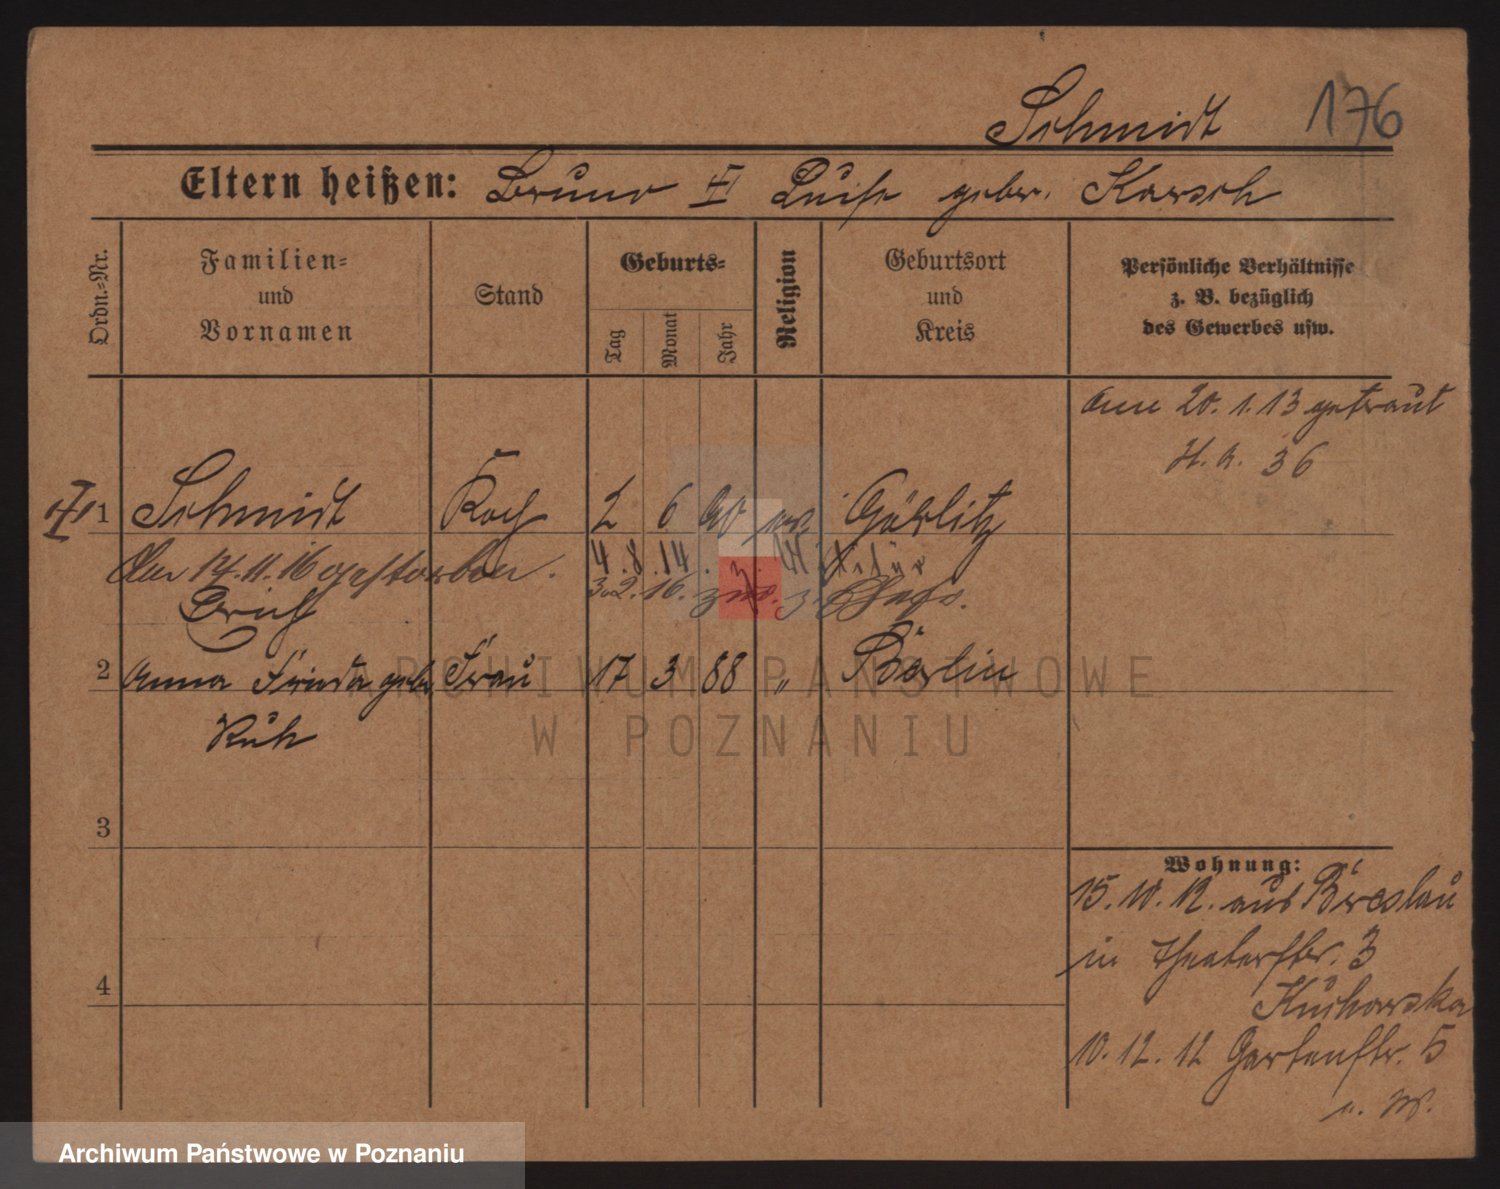 Schmidt 176
Eltern heißen: Bruno Luise gebor. Karsch
Ordn.-Nr.
Familien-
und
Vornamen
Stand
Geburts-
Tag
Monat
Jahr
Religion
Geburtsort
und
Kreis
Persönliche Verhältnisse
z. B. bezüglich
des Gewerbes usw.
Am 20. 1. 13 getraut
H. A. 36
1 Schmidt Koch 2 6 90 Görlitz
Am 14. 11. 16 gestorben. 4. 8. 14. z. Militär
Erich 3. 2. 16. zur. z.
2 Anna Frieda geb. Frau 17 3 88 " Berlin
Kuh
3
4
Wohnung:
15. 10. 12. aus Breslau
in Theaterstr. 3
Kucharska
10. 12. 12 Gartenstr. 5
ARCHIWUM PAŃSTWOWE
W POZNANIU
Archiwum Państwowe w Poznaniu